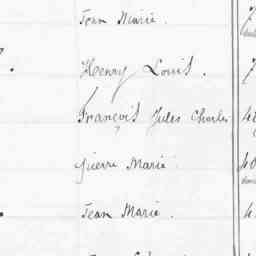 Jean Marie.
Henry Louis.
François Jules Charles
Pierre Marie
Jean Marie.